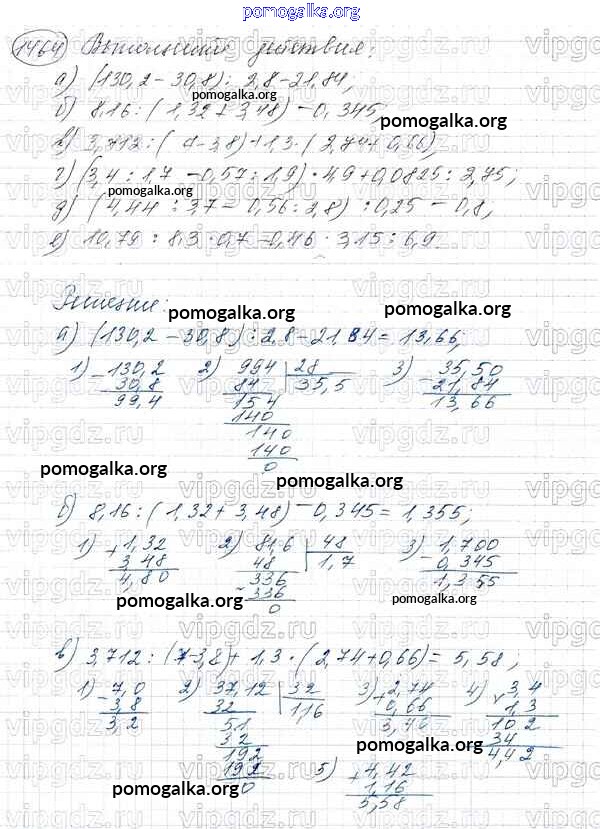 pomogalka.org
1464 Выполнить действия:
а) (130,2-30,8): 2,8-21,84;
pomogalka.org
б) 8,16 : (1,32+3,48) -0,345;
pomogalka.org
в) 3,712 : ( 7-3,8)+1,3·(2,74+0,66);
г) (3,4 : 1,7 -0,57 : 1,9)·4,9+0,0825 : 2,75;
pomogalka.org
д) (4,44 : 3,7 - 0,56 : 2,8) : 0,25 - 0,8;
е) 10,79 : 8,3·0,7 -0,46·3,15 : 6,9.
Решение:
pomogalka.org pomogalka.org
а) (130,2-30,8) : 2,8-21,84 = 13,66;
1) -130,2 2) 994 |28 3) 35,50
30,8 84 35,5 -21,84
99,4 154 13,66
140
140
140
0
pomogalka.org pomogalka.org
б) 8,16 : (1,32+3,48) -0,345 = 1,355;
1) +1,32 2) 81,6 |48 3) -1,700
3,48 48 1,7 0,345
4,80 336 1,355
-336
0
pomogalka.org pomogalka.org
в) 3,712 : (7-3,8)+1,3·(2,74+0,66) = 5,58;
1) -7,0 2) 37,12 |32 3) +2,74 4) ×3,4
3,8 32 1,16 0,66 1,3
3,2 51 3,40 102
32 34
192 4,42
192
0
pomogalka.org
5) +4,42
1,16
5,58
pomogalka.org
vipgdz.ru